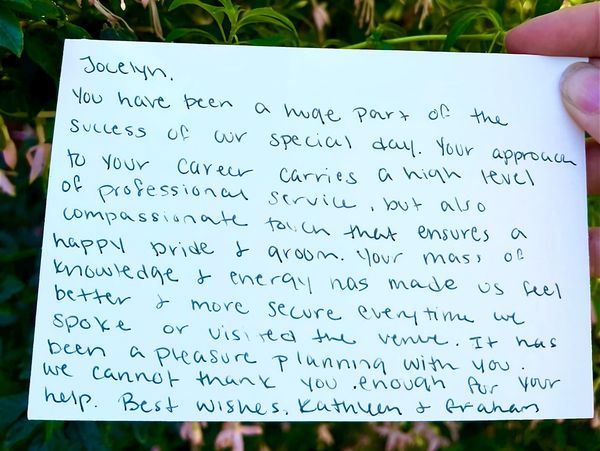 Jocelyn,
You have been a huge part of the
success of our special day. Your approach
to your career carries a high level
of professional service, but also
compassionate touch that ensures a
happy bride & groom. Your mass of
knowledge & energy has made us feel
better & more secure everytime we
spoke or visited the venue. It has
been a pleasure planning with you.
We cannot thank you enough for your
help. Best wishes, Kathleen & Graham